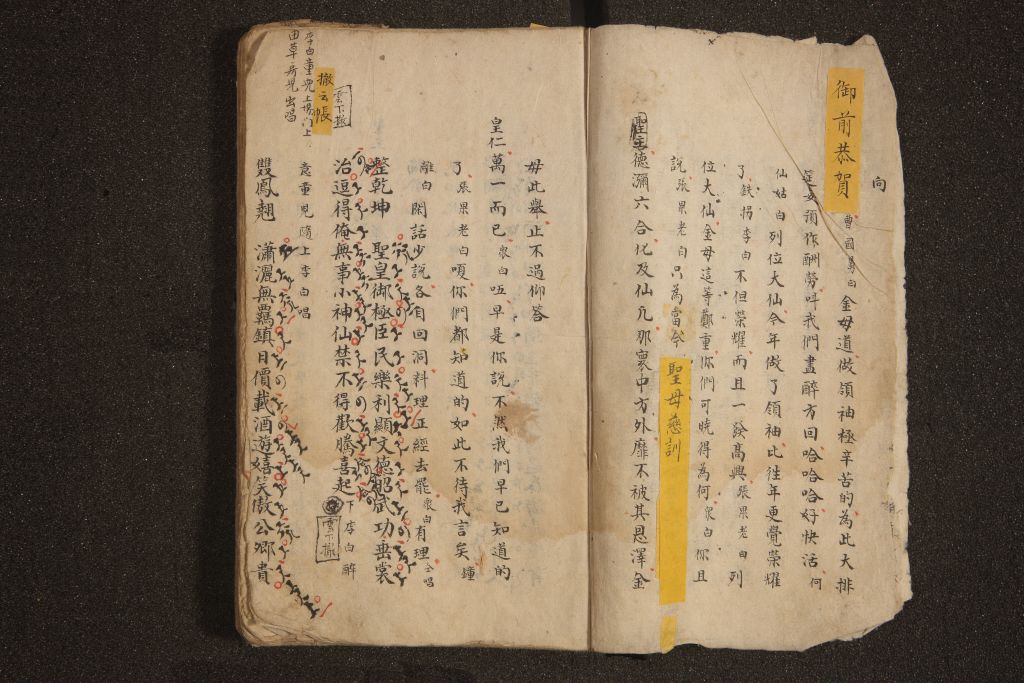 御前恭賀
向
曹國舅白金母道做領袖極辛苦的為此大排
筵宴預作酬勞呌我們盡醉方回哈哈哈好快活何
仙姑白列位大仙今年做了領袖比徃年更覺榮耀
了鉄拐李白不但榮耀而且一發高興張果老白列
位大仙金母這等鄭重你們可曉得為何衆白你且
說張果老白只為當今聖母慈訓
聖主德瀰六合化及仙凡那寰中方外靡不被其恩澤金
母此舉止不過仰答
皇仁萬一而已衆白早是你說不然我們早已知道的
了張果老白嗄你們都知道的如此不待我言矣鍾
離白閑話少說各自回洞料理正經去罷衆白有理仝唱
整乾坤 聖皇御極臣民樂利顯文德昭武功垂裳
治逗得俺無事小神仙禁不得歡騰喜起下李白醉
雲下撤
雲下撤
撤云帳
意童兒隨上李白唱
李白童兒上場門上
由草房兒出唱
雙鳳翹 瀟灑無羈鎮日價載酒遊嬉笑傲公卿貴